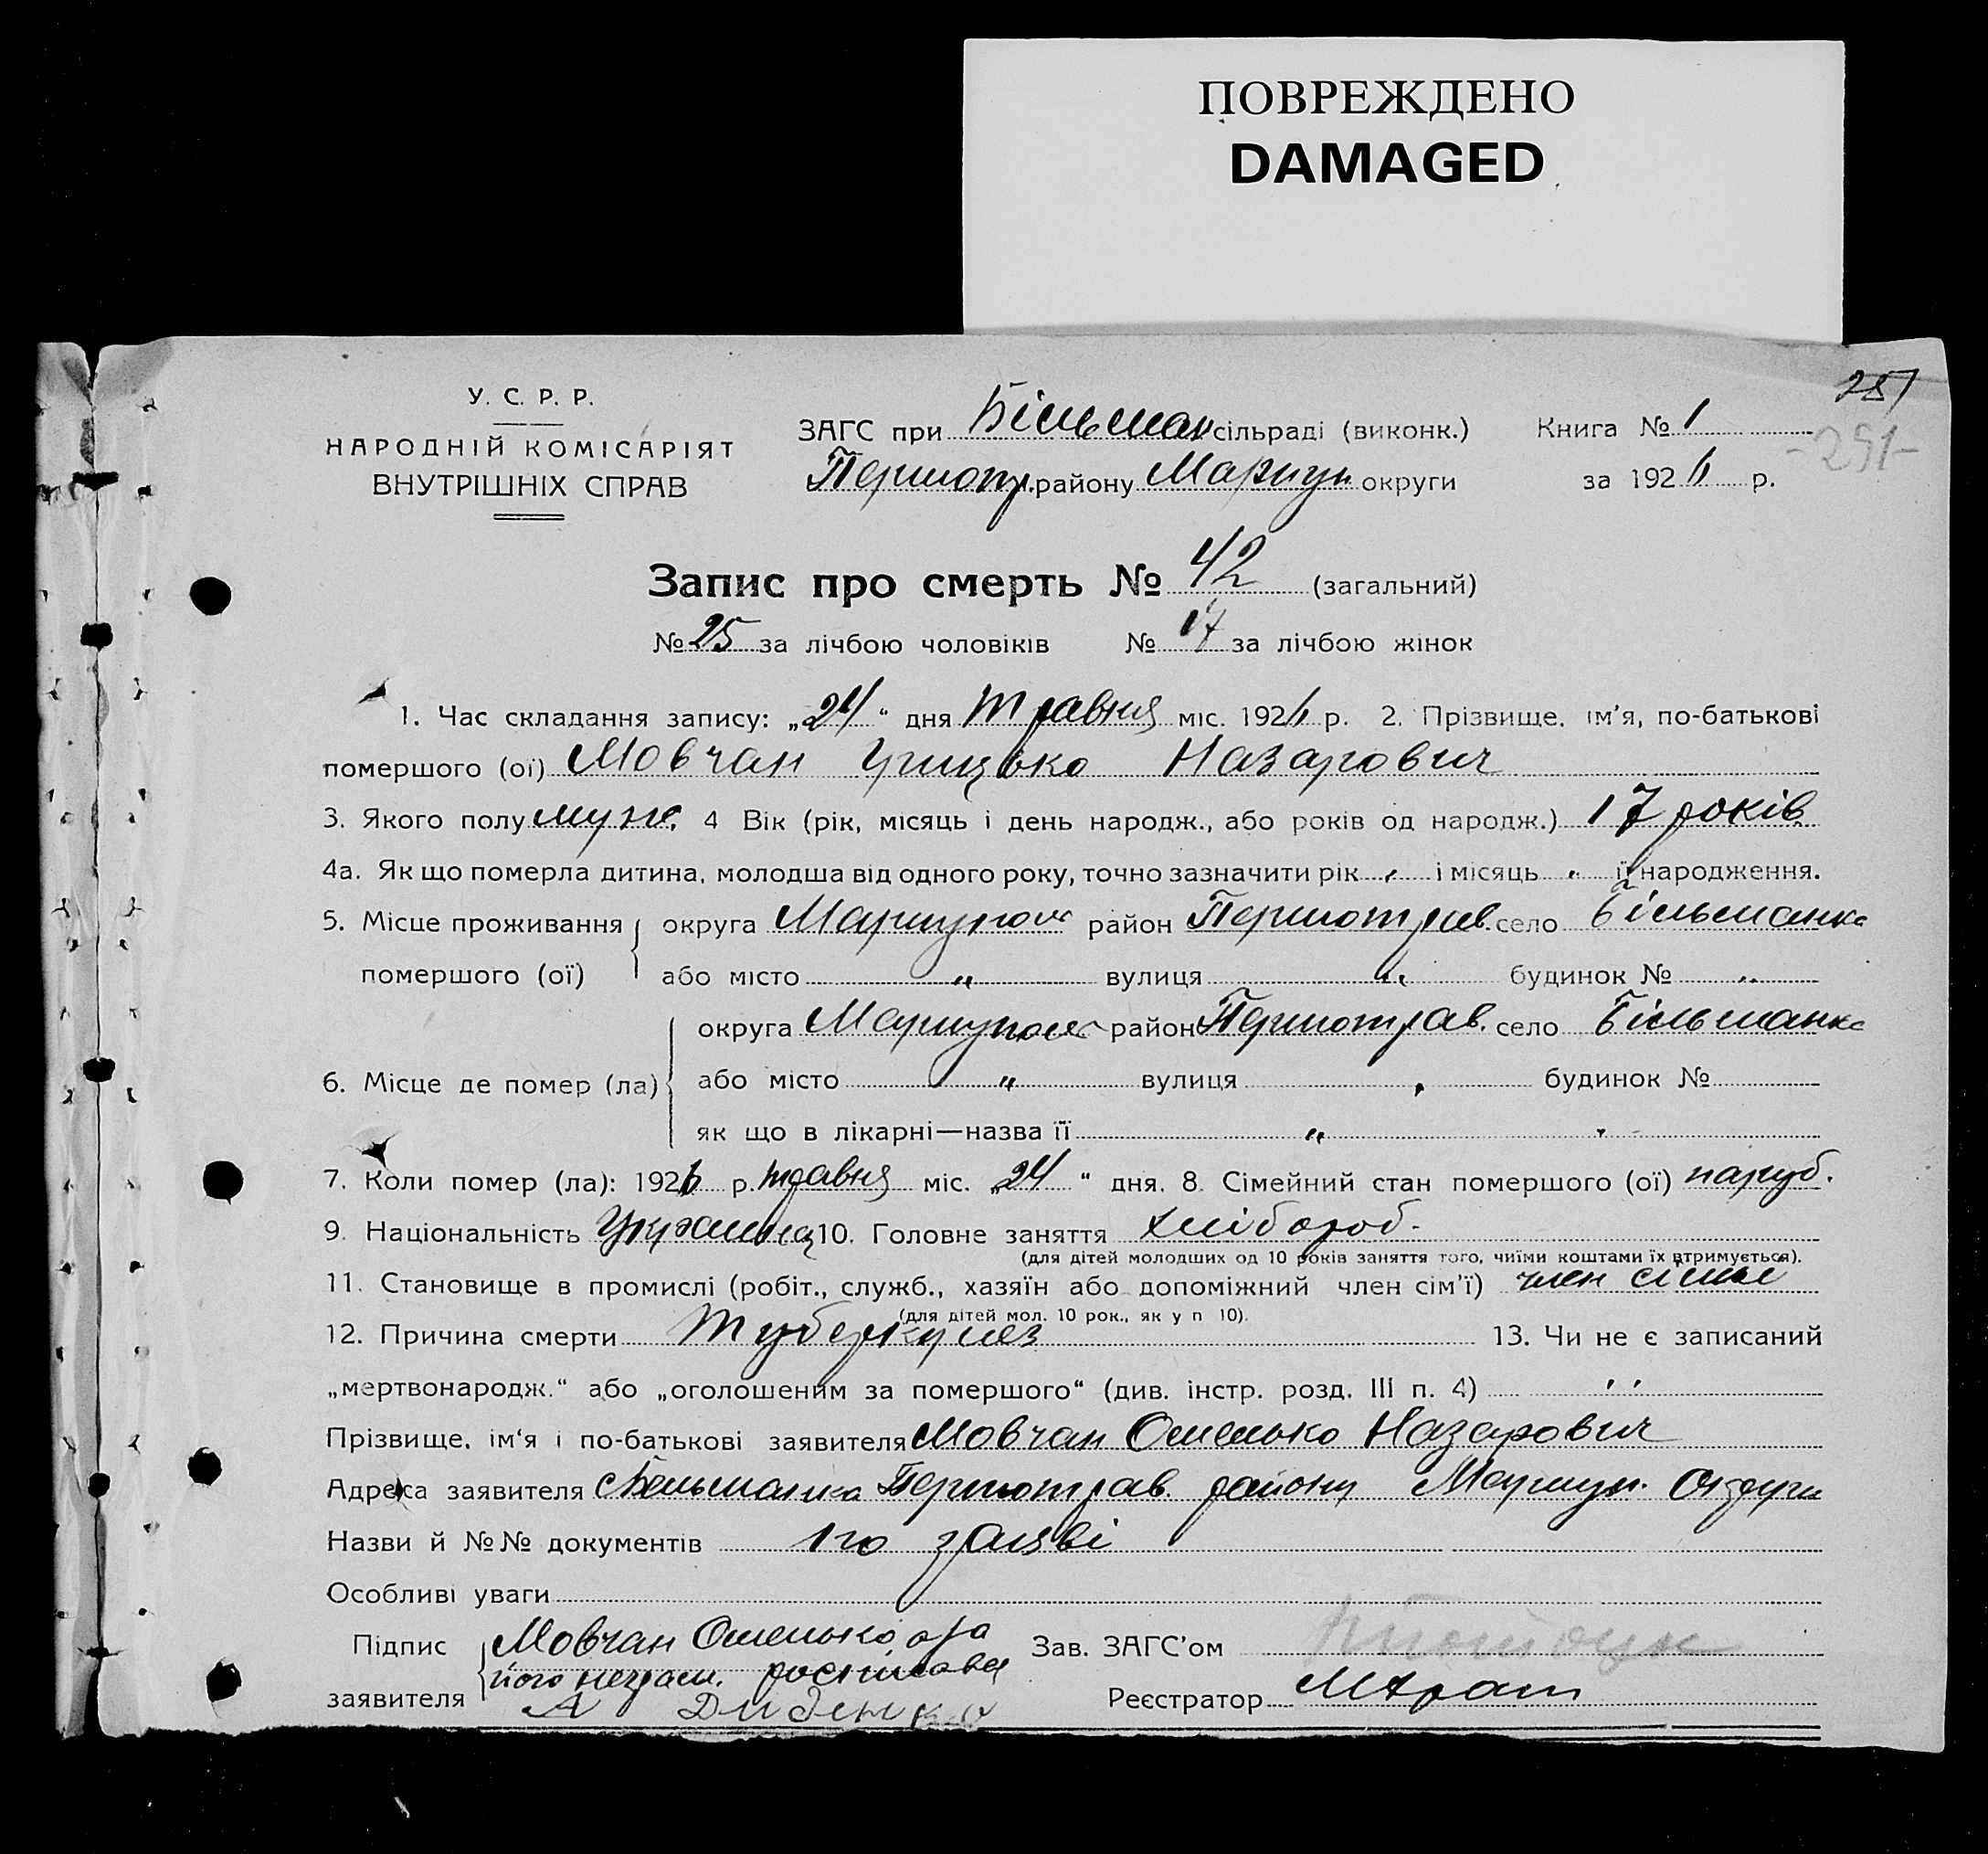 ПОВРЕЖДЕНО
DAMAGED
251
-251-
У. С. Р. Р.
НАРОДНІЙ КОМІСАРІЯТ
ВНУТРІШНІХ СПРАВ
ЗАГС при Більман сільраді (виконк.) Книга № 1
Першотр. району Маріуп. округи за 1926 р.
Запис про смерть № 42 (загальний)
№ 25 за лічбою чоловіків № 17 за лічбою жінок
1. Час складання запису: „24“ дня травня міс. 1926 р. 2. Прізвище, ім'я, по-батькові
помершого (ої) Мовчан Грицько Назарович
3. Якого полу муж. 4 Вік (рік, місяць і день народж., або років од народж.) 17 років
4а. Як що померла дитина, молодша від одного року, точно зазначити рік „ і місяць „ її народження.
5. Місце проживання округа Маріупол район Першотрав. село Більманка
помершого (ої) або місто „ вулиця „ будинок № „
округа Маріупол район Першотрав. село Більманка
6. Місце де помер (ла) або місто „ вулиця „ будинок №
як що в лікарні—назва її „ „
7. Коли помер (ла): 1926 р. травня міс. „24“ дня. 8. Сімейний стан помершого (ої) паруб.
9. Національність Українец 10. Головне заняття хлібороб.
(для дітей молодших од 10 років заняття того, чиїми коштами їх втримується).
11. Становище в промислі (робіт., служб., хазяїн або допоміжний член сім'ї) член сімьї
(для дітей мол. 10 рок., як у п 10).
12. Причина смерти туберкульоз 13. Чи не є записаний
„мертвонародж.“ або „оголошеним за помершого“ (див. інстр. розд. III п. 4) „
Прізвище, ім'я і по-батькові заявителя Мовчан Омелько Назарович
Адреса заявителя с Більманка Першотрав. району Маріуп. Округи
Назви й №№ документів по заяві
Особливі уваги
Підпис Мовчан Омелько, а за Зав. ЗАГС'ом
його неграм. росписався
заявителя А Диденко Реєстратор